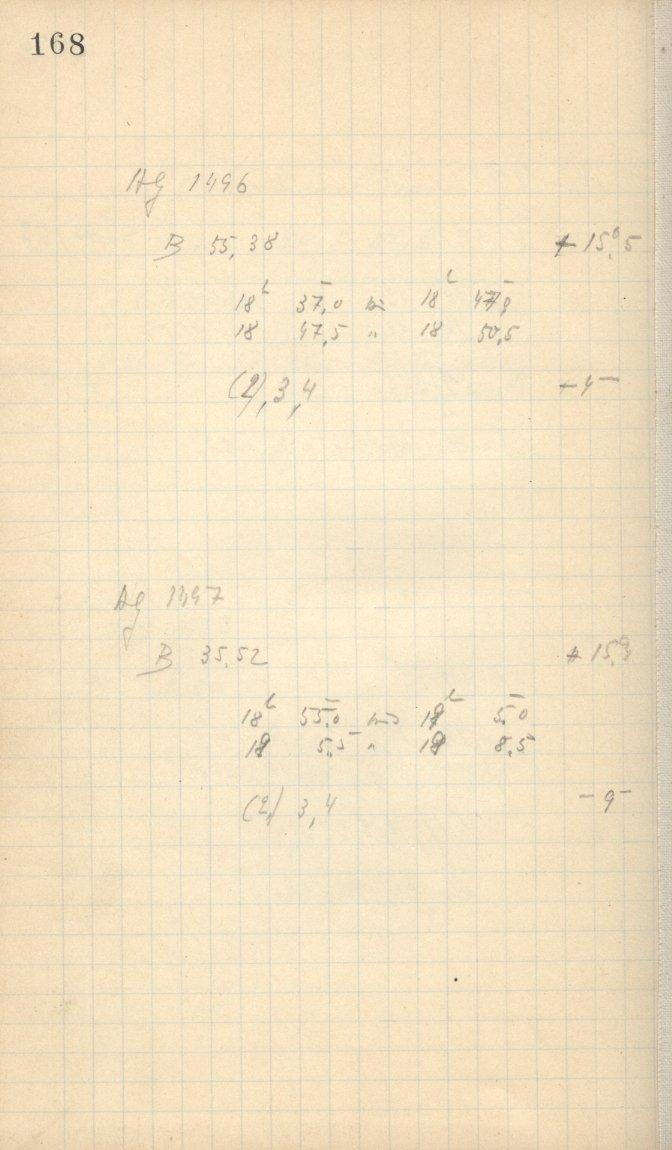 168
Ag 1496
B 55,38 + 15°,5
18h 37m,0 bis 18h 47m,0
18 47,5 " 18 50,5
(2), 3, 4 – 4 –
Ag 1497
B 35,52 + 15°,3
18h 55m,0 bis 19h 5m,0
19 5,5 " 19 8,5
(2,) 3, 4 – 9 –